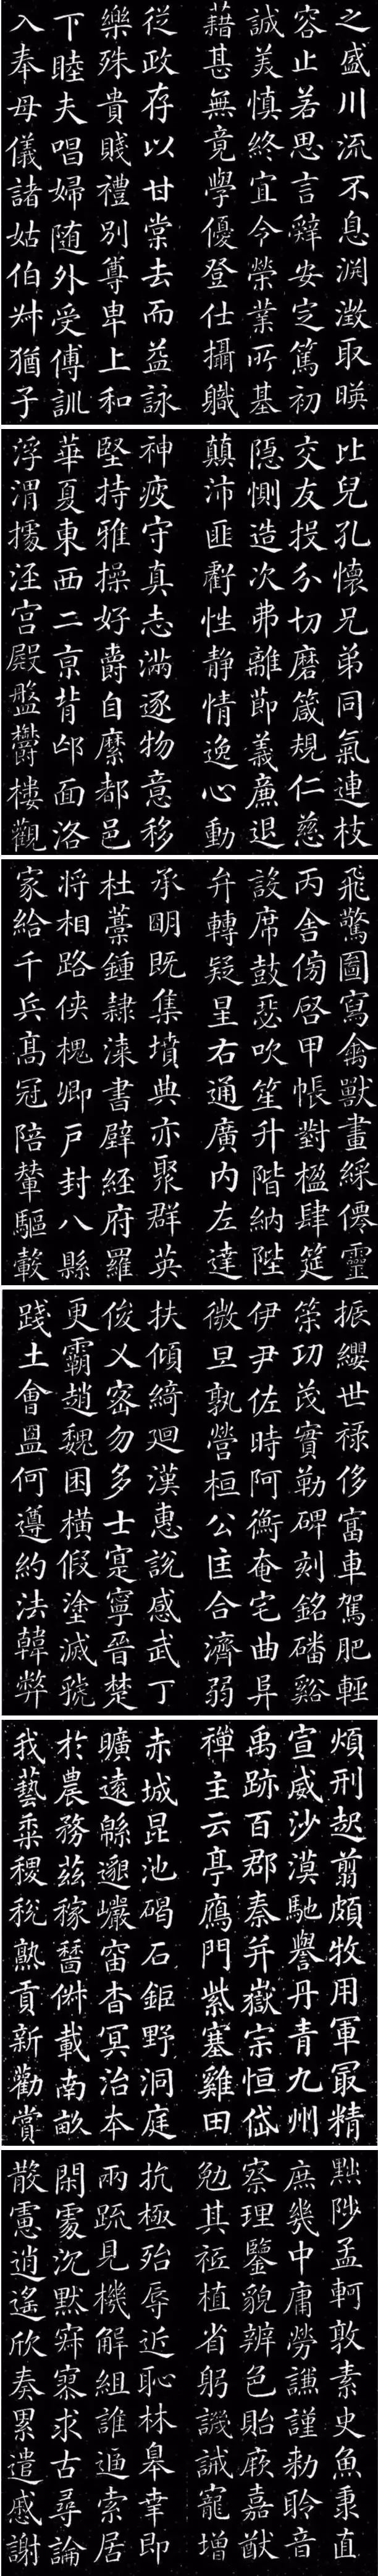 之盛川流不息渊澂取暎
容止若思言辭安定篤初
誠美慎終宜令榮業所基
藉甚無竟學優登仕攝職
從政存以甘棠去而益詠
樂殊貴賤禮別尊卑上和
下睦夫唱婦随外受傅訓
入奉母儀諸姑伯叔猶子
比兒孔懷兄弟同氣連枝
交友投分切磨箴規仁慈
隐惻造次弗離節義廉退
顛沛匪虧性静情逸心動
神疲守真志滿逐物意移
堅持雅操好爵自縻都邑
華夏東西二京背邙面洛
浮渭據涇宫殿盤欝樓觀
飛驚圖寫禽獸畫綵僊靈
丙舍傍啓甲帳對楹肆筵
設席鼓瑟吹笙升階納陛
弁轉疑星右通廣内左達
承明既集墳典亦聚群英
杜藁鍾隸漆書壁經府羅
将相路俠槐卿户封八縣
家給千兵高冠陪輦驅轂
振纓世禄侈富車駕肥輕
策功茂實勒碑刻銘磻谿
伊尹佐時阿衡奄宅曲阜
微旦孰營桓公匡合濟弱
扶傾綺迴漢惠説感武丁
俊乂密勿多士寔寧晉楚
更霸趙魏困横假塗滅虢
踐土會盟何遵約法韓弊
煩刑起翦頗牧用軍最精
宣威沙漠馳譽丹青九州
禹跡百郡秦并嶽宗恒岱
禪主云亭鴈門紫塞雞田
赤城昆池碣石鉅野洞庭
曠遠緜邈巖岫杳冥治本
於農務茲稼穡俶載南畝
我藝黍稷稅熟貢新勸賞
黜陟孟軻敦素史魚秉直
庶幾中庸勞謙謹勑聆音
察理鑒貌辨色貽厥嘉猷
勉其祗植省躬譏誡寵增
抗極殆辱近恥林皋幸即
兩疏見機解組誰逼索居
閑處沉默寂寥求古尋論
散慮逍遙欣奏累遣慼謝